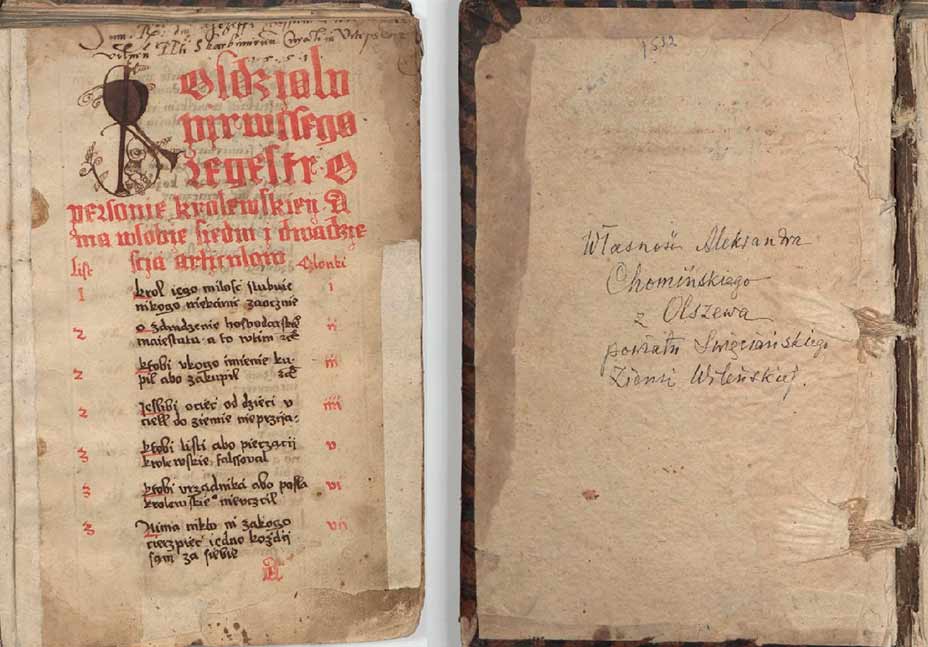 1551
Rosdzialu
pirwssego
Regestr O
personie krolewskiey A
ma wsobie siedm i dwadzie
scia articulow
List
Czlonki
1 krol iego milosc slubuie i
nikogo niekarac zaocznie
2 o zdradzenie hospodarskie° ii
maiestatu a to wtim
2 ktobi vkogo imienie ku- iii
pil abo zakupil
2 Jeslibi ociec od dzieci v iiii
ciekl do ziemie nieprzija-
3 ktobi listi abo pieczącij v
krolewskie falssoval
3 ktobi vrzadnika abo posła vi
krolewskie° nieuczcil
3 Nima nikto ni zakogo vii
cierzpiec iedno kozdij
sam za siebie
A
1532
Własność Aleksandra
Chomińskiego
z Olszewa
powiatu Święciańskiego
Ziemi Wileńskiej.